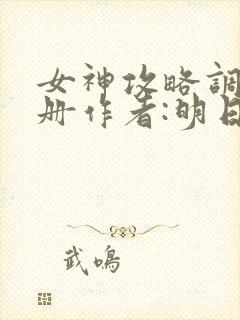 女神攻略調
册作者:明日
武鳴